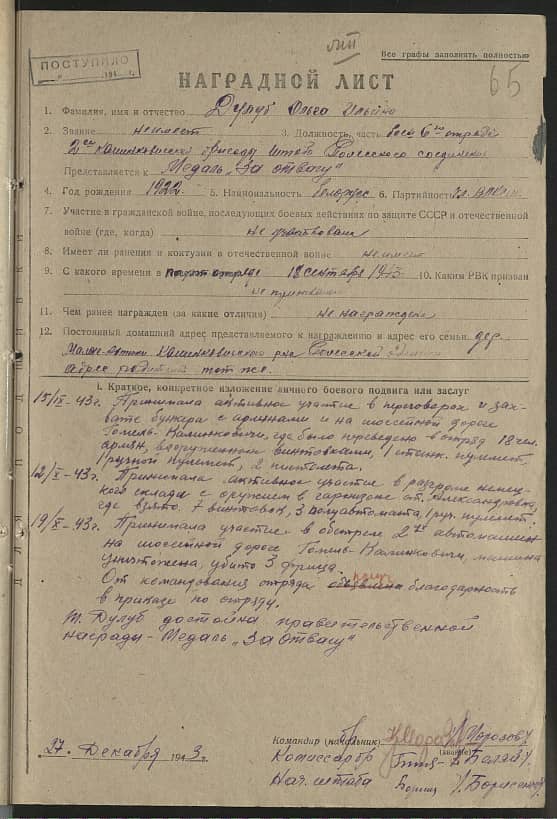 Все графы заполнять полностью
ПОСТУПИЛО
65
НАГРАДНОЙ ЛИСТ
1. Фамилия, имя и отчество Дулуб Ольга Ильин
2. Звание не имеет 3. Должность, часть боец 6го отряда
2ой Калинковичской бригады штаба Полесского соединения
Представляется к Медаль „За отвагу"
4. Год рождения 1922 5. Национальность белорус 6. Партийность
7. Участие в гражданской войне, последующих боевых действиях по защите СССР и отечественной
войне (где, когда) не участвовала
8. Имеет ли ранения и контузии в отечественной войне не имеет
9. С какого времени в 18 сентября 1943 10. Каким РВК призван
не призвана
11. Чем ранее награжден (за какие отличия) не награждена
12. Постоянный домашний адрес представляемого к награждению и адрес его семьи дер.
Калинковичского р-на Полесской
адрес родителей тот же.
I. Краткое, конкретное изложение личного боевого подвига или заслуг
15/IX-43г. Принимала активное участие в переговорах и зах-
вате бункера с армянами и на шоссейной дороге
Гомель-Калинковичи, где было переведено в отряд 18 чел.
армян, вооруженных винтовками, 1 станк. пулемет,
1 ручной пулемет, 2 пистолета.
12/X-43г. Принимала активное участие в разгроме немец-
кого склада с оружием в гарнизоне ст. Александровка,
где взято 7 винтовок, 3 полуавтомата, 1 руч. пулемет.
19/X-43г. Принимала участие в обстреле 2х автомашин
на шоссейной дороге Гомель-Калинковичи, машина
уничтожена, убито 3 фрица.
От командования отряда благодарность
в приказе по отряду.
т. Дулуб достойна правительственной
награды - Медаль „За отвагу"
Командир (начальник) /Морозов/
(звание)
27. Декабря 1943г.
Комиссар бр /Беляй/
Нач. штаба /Борисенко/